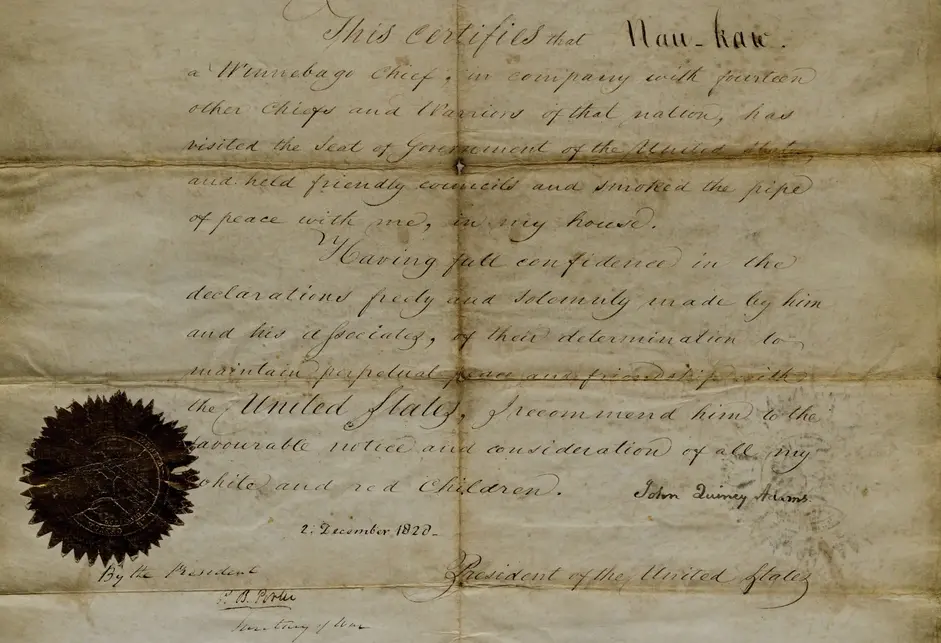 This certifies that Nau-kaw.
a Winnebago Chief, in company with fourteen
other Chiefs and Warriors of that nation, has
visited the Seat of Government of the United States,
and held friendly councils and smoked the pipe
of peace with me, in my house.
Having full confidence in the
declarations freely and solemnly made by him
and his associates, of their determination to
maintain perpetual peace and friendship with
the United States, I recommend him to the
favourable notice and consideration of all my
white and red Children.
John Quincy Adams
2: December, 1828-
President of the United States
By the President
P. B. Porter
Secretary of War